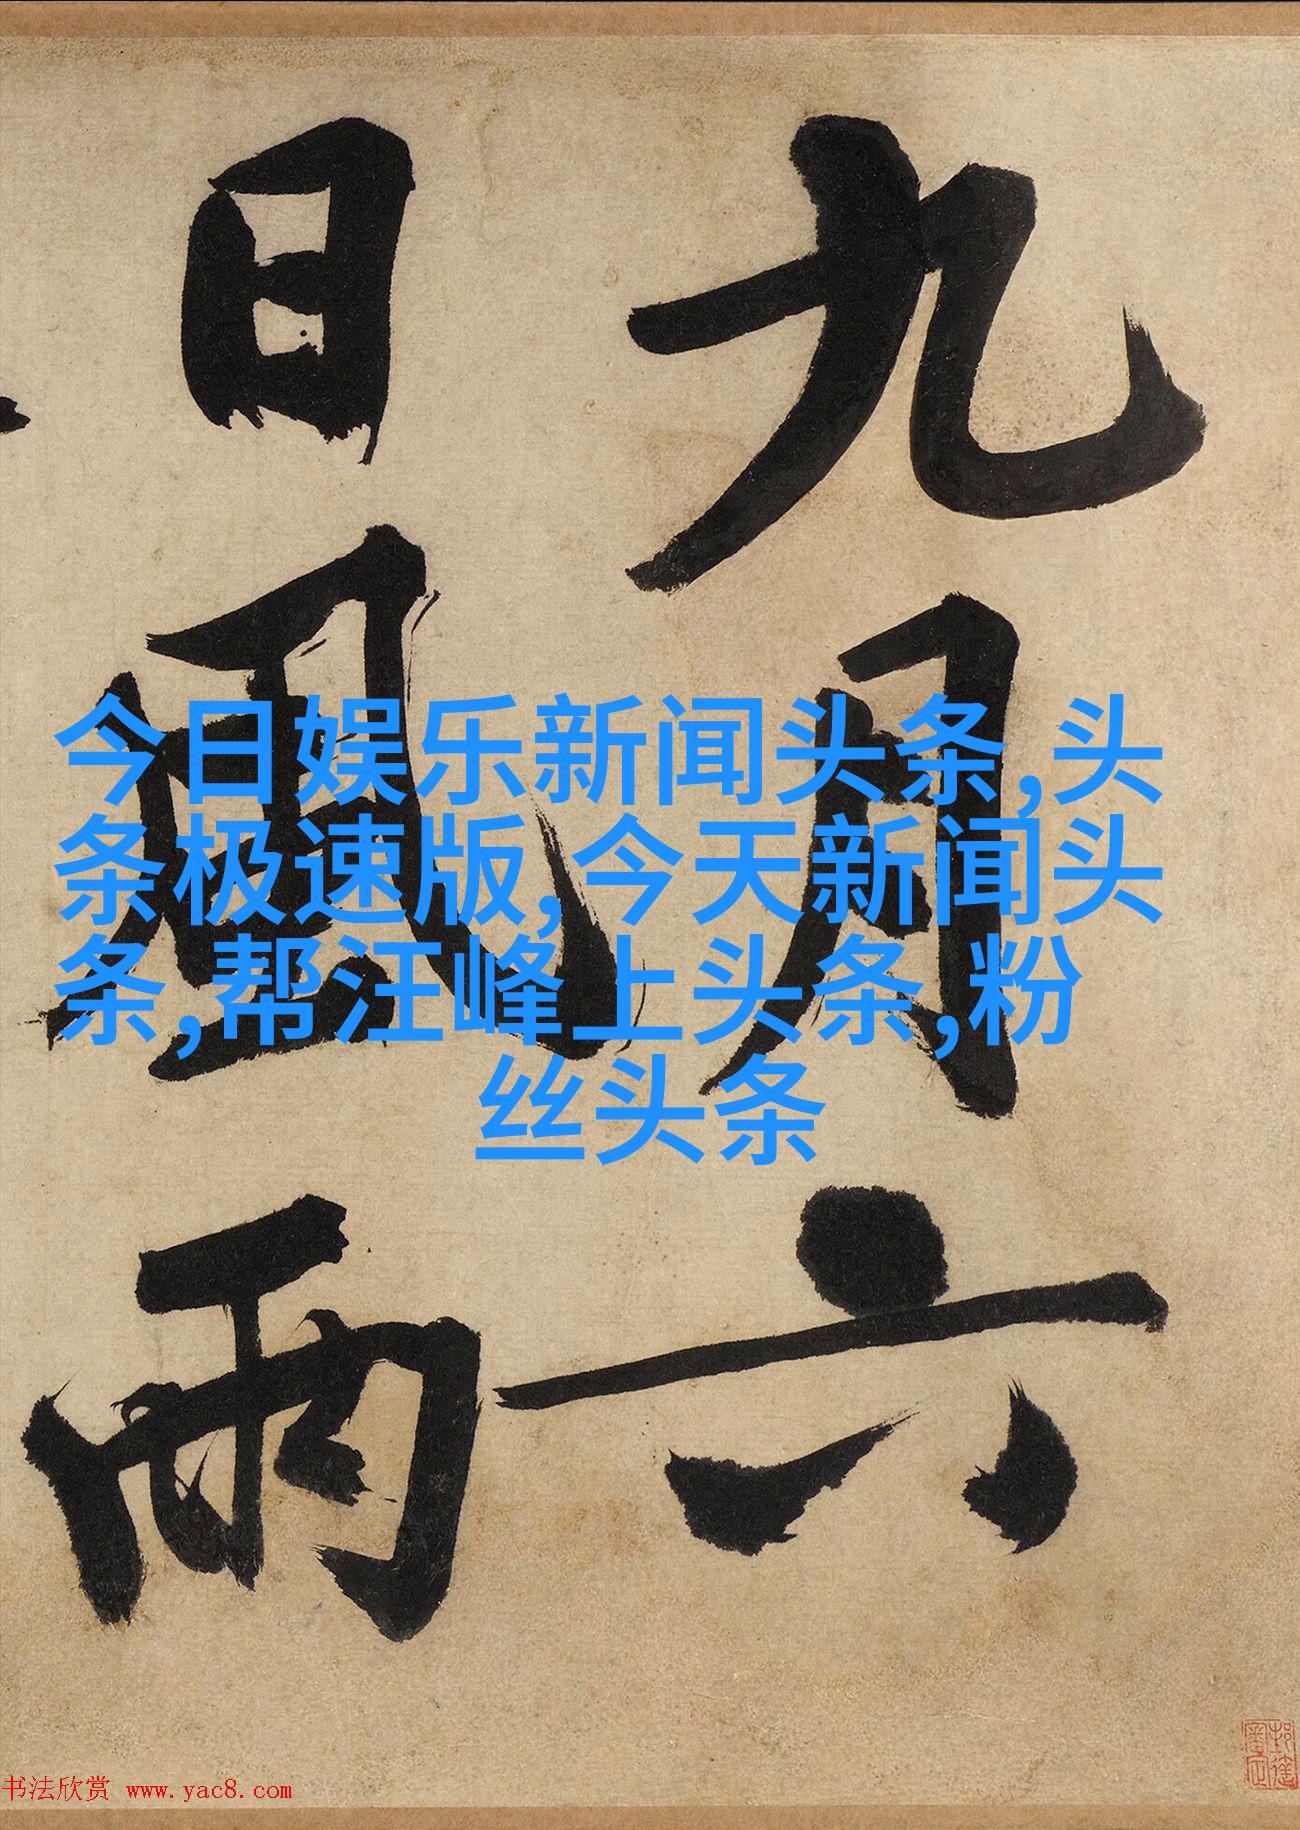 九月六
日風雨
今日娱乐新闻头条,头
条极速版,今天新闻头
条,帮汪峰上头条,粉
丝头条
书法欣赏 www.yac8.com